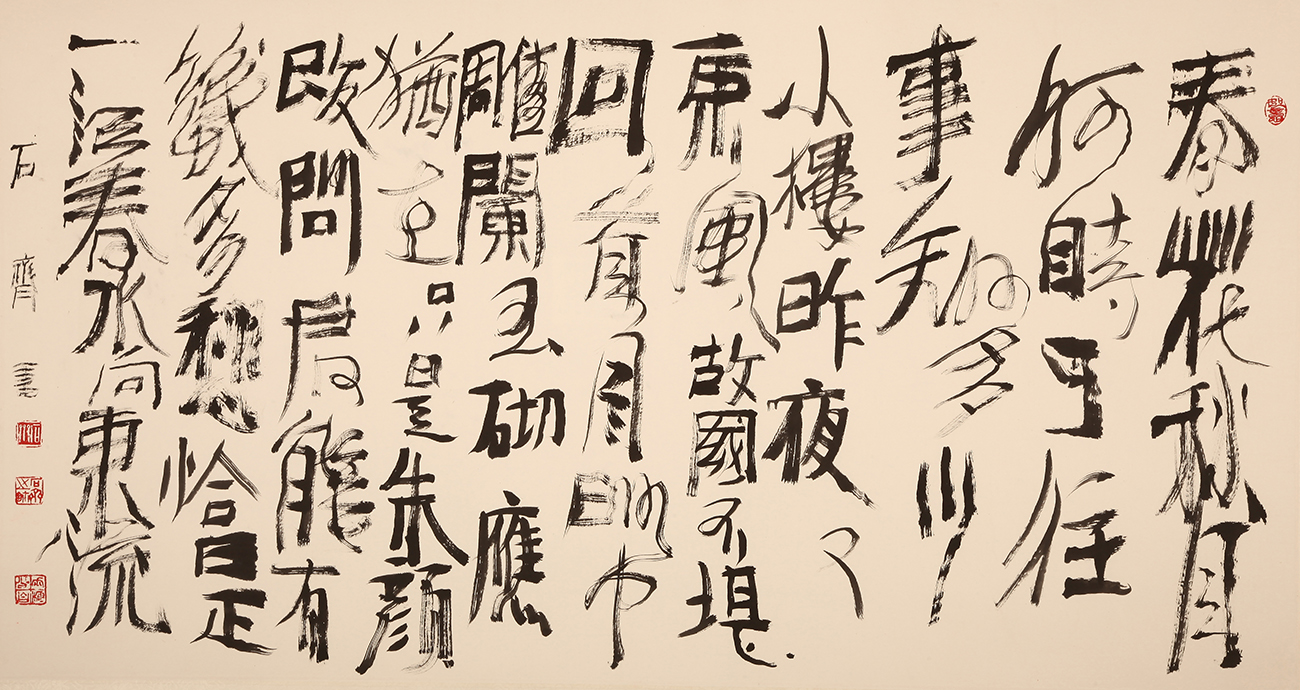 春花秋月
何時了往
事知多少
小樓昨夜又
東風故國不堪
回首月明中
雕闌玉砌應
猶在只是朱顏
改問君能有
幾多愁恰是
一江春水向東流
石齊書